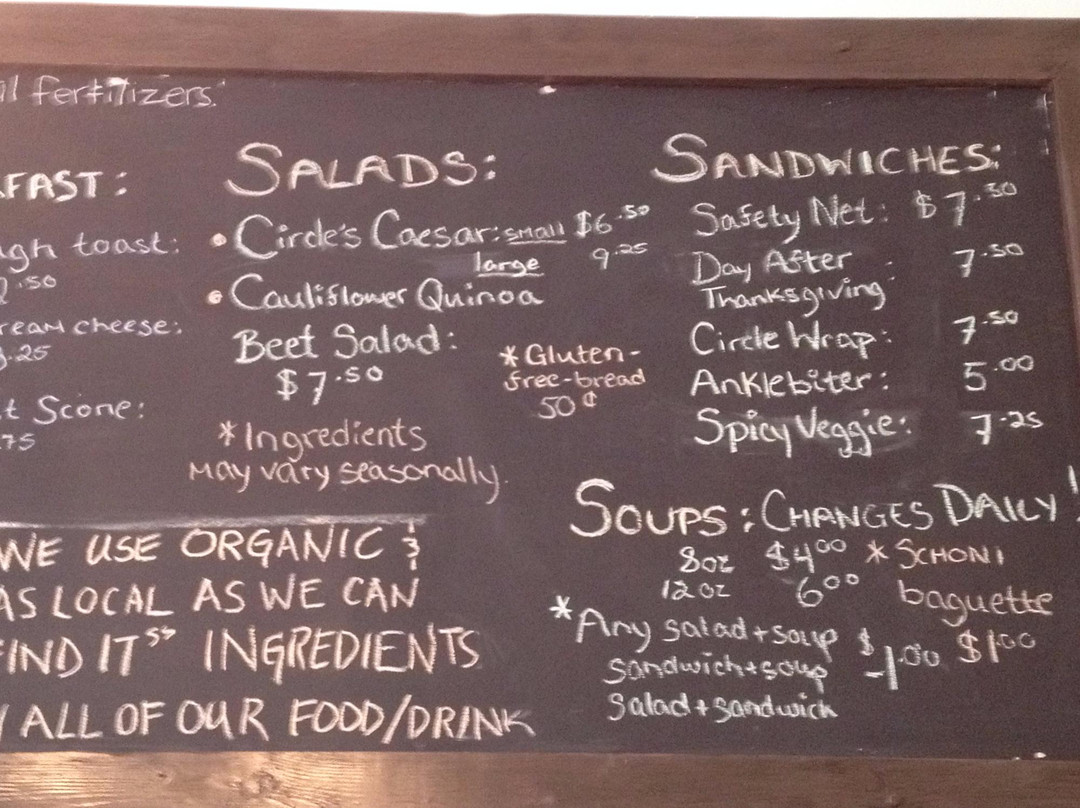 fertilizers.
FAST:
toast:
.50
cheese:
.25
Scone:
75
SALADS:
• Circle's Caesar: small $6.50
large 9.25
• Cauliflower Quinoa
Beet Salad:
$7.50
*Gluten-
free-bread
50¢
*Ingredients
May vary seasonally.
SANDWICHES:
Safety Net: $7.50
Day After : 7.50
Thanksgiving
Circle Wrap: 7.50
Anklebiter: 5.00
Spicy Veggie: 7.25
SOUPS: CHANGES DAILY!
8oz $4.00 *SCHONI
12oz 6.00 baguette
$1.00
*Any salad+soup $
sandwich+soup -1.00
salad+sandwich
WE USE ORGANIC &
AS LOCAL AS WE CAN
FIND IT INGREDIENTS
ALL OF OUR FOOD/DRINK